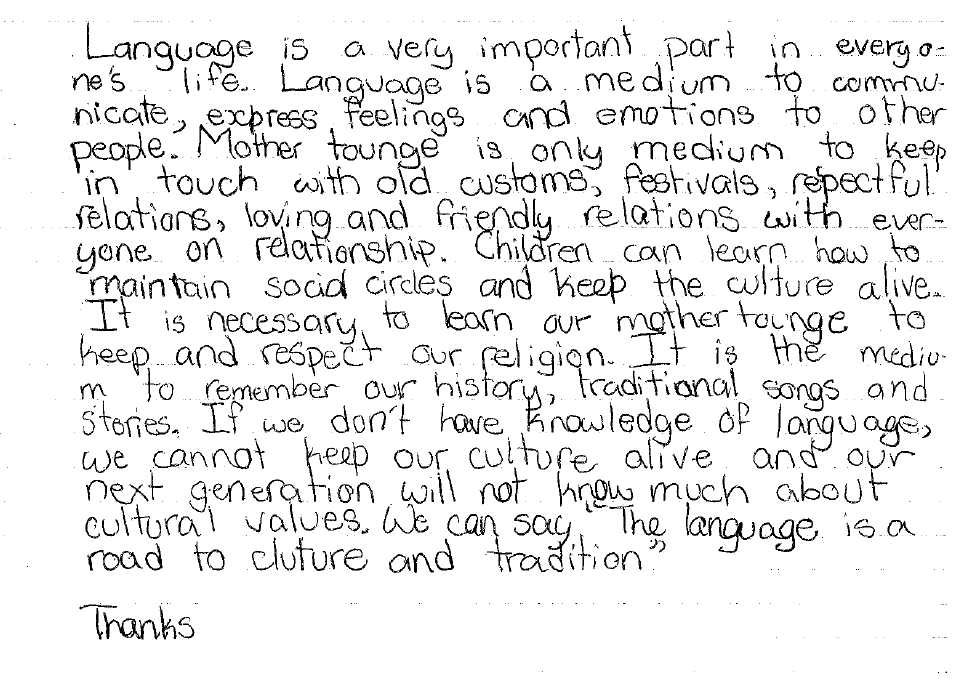 Language is a very important part in everyo-
ne's life. Language is a medium to commu-
nicate, express feelings and emotions to other
people. Mother tounge is only medium to keep
in touch with old customs, festivals, repectful
relations, loving and friendly relations with ever-
yone on relationship. Children can learn how to
maintain social circles and keep the culture alive.
It is necessary to learn our mother tounge to
keep and respect our religion. It is the mediu-
m to remember our history, traditional songs and
stories. If we don't have knowledge of language,
we cannot keep our culture alive and our
next generation will not know much about
cultural values. We can say "The language is a
road to cluture and tradition"
Thanks